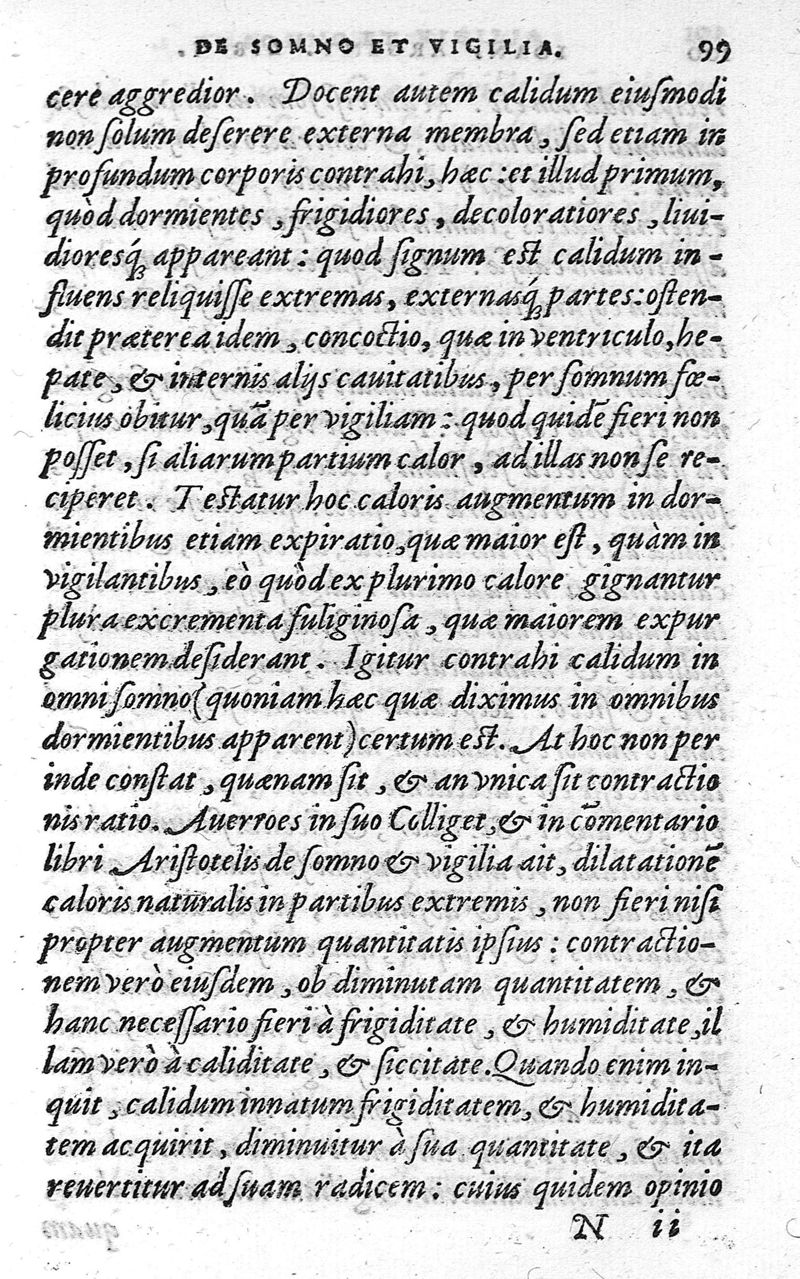 DE SOMNO ET VIGILIA. 99
cere aggredior. Docent autem calidum eiuſmodi
non ſolum deſerere externa membra, ſed etiam in
profundum corporis contrahi, hæc: et illud primum,
quòd dormientes, frigidiores, decoloratiores, liui-
dioresq́; appareant: quod ſignum est calidum in-
fluens reliquiſſe extremas, externasq́; partes: oſten-
dit præterea idem, concoctio, quæ in ventriculo, he-
pate, & internis alijs cauitatibus, per ſomnum fœ-
licius obitur, quā per vigiliam: quod quidē fieri non
poſſet, ſi aliarum partium calor, ad illas non ſe re-
ciperet. Testatur hoc caloris augmentum in dor-
mientibus etiam expiratio, quæ maior eſt, quàm in
vigilantibus, eò quòd ex plurimo calore gignantur
plura excrementa fuliginoſa, quæ maiorem expur
gationem deſiderant. Igitur contrahi calidum in
omni ſomno (quoniam hæc quæ diximus in omnibus
dormientibus apparent) certum est. At hoc non per
inde conſtat, quænam ſit, & an vnica ſit contractio
nis ratio. Auerroes in ſuo Colliget, & in cōmentario
libri Ariſtotelis de ſomno & vigilia ait, dilatationē
caloris naturalis in partibus extremis, non fieri niſi
propter augmentum quantitatis ipſius: contractio-
nem verò eiuſdem, ob diminutam quantitatem, &
hanc neceſſario fieri à frigiditate, & humiditate, il
lam verò à caliditate, & ſiccitate. Quando enim in-
quit, calidum innatum frigiditatem, & humidita-
tem acquirit, diminuitur à ſua quantitate, & ita
reuertitur ad ſuam radicem: cuius quidem opinio
N ii